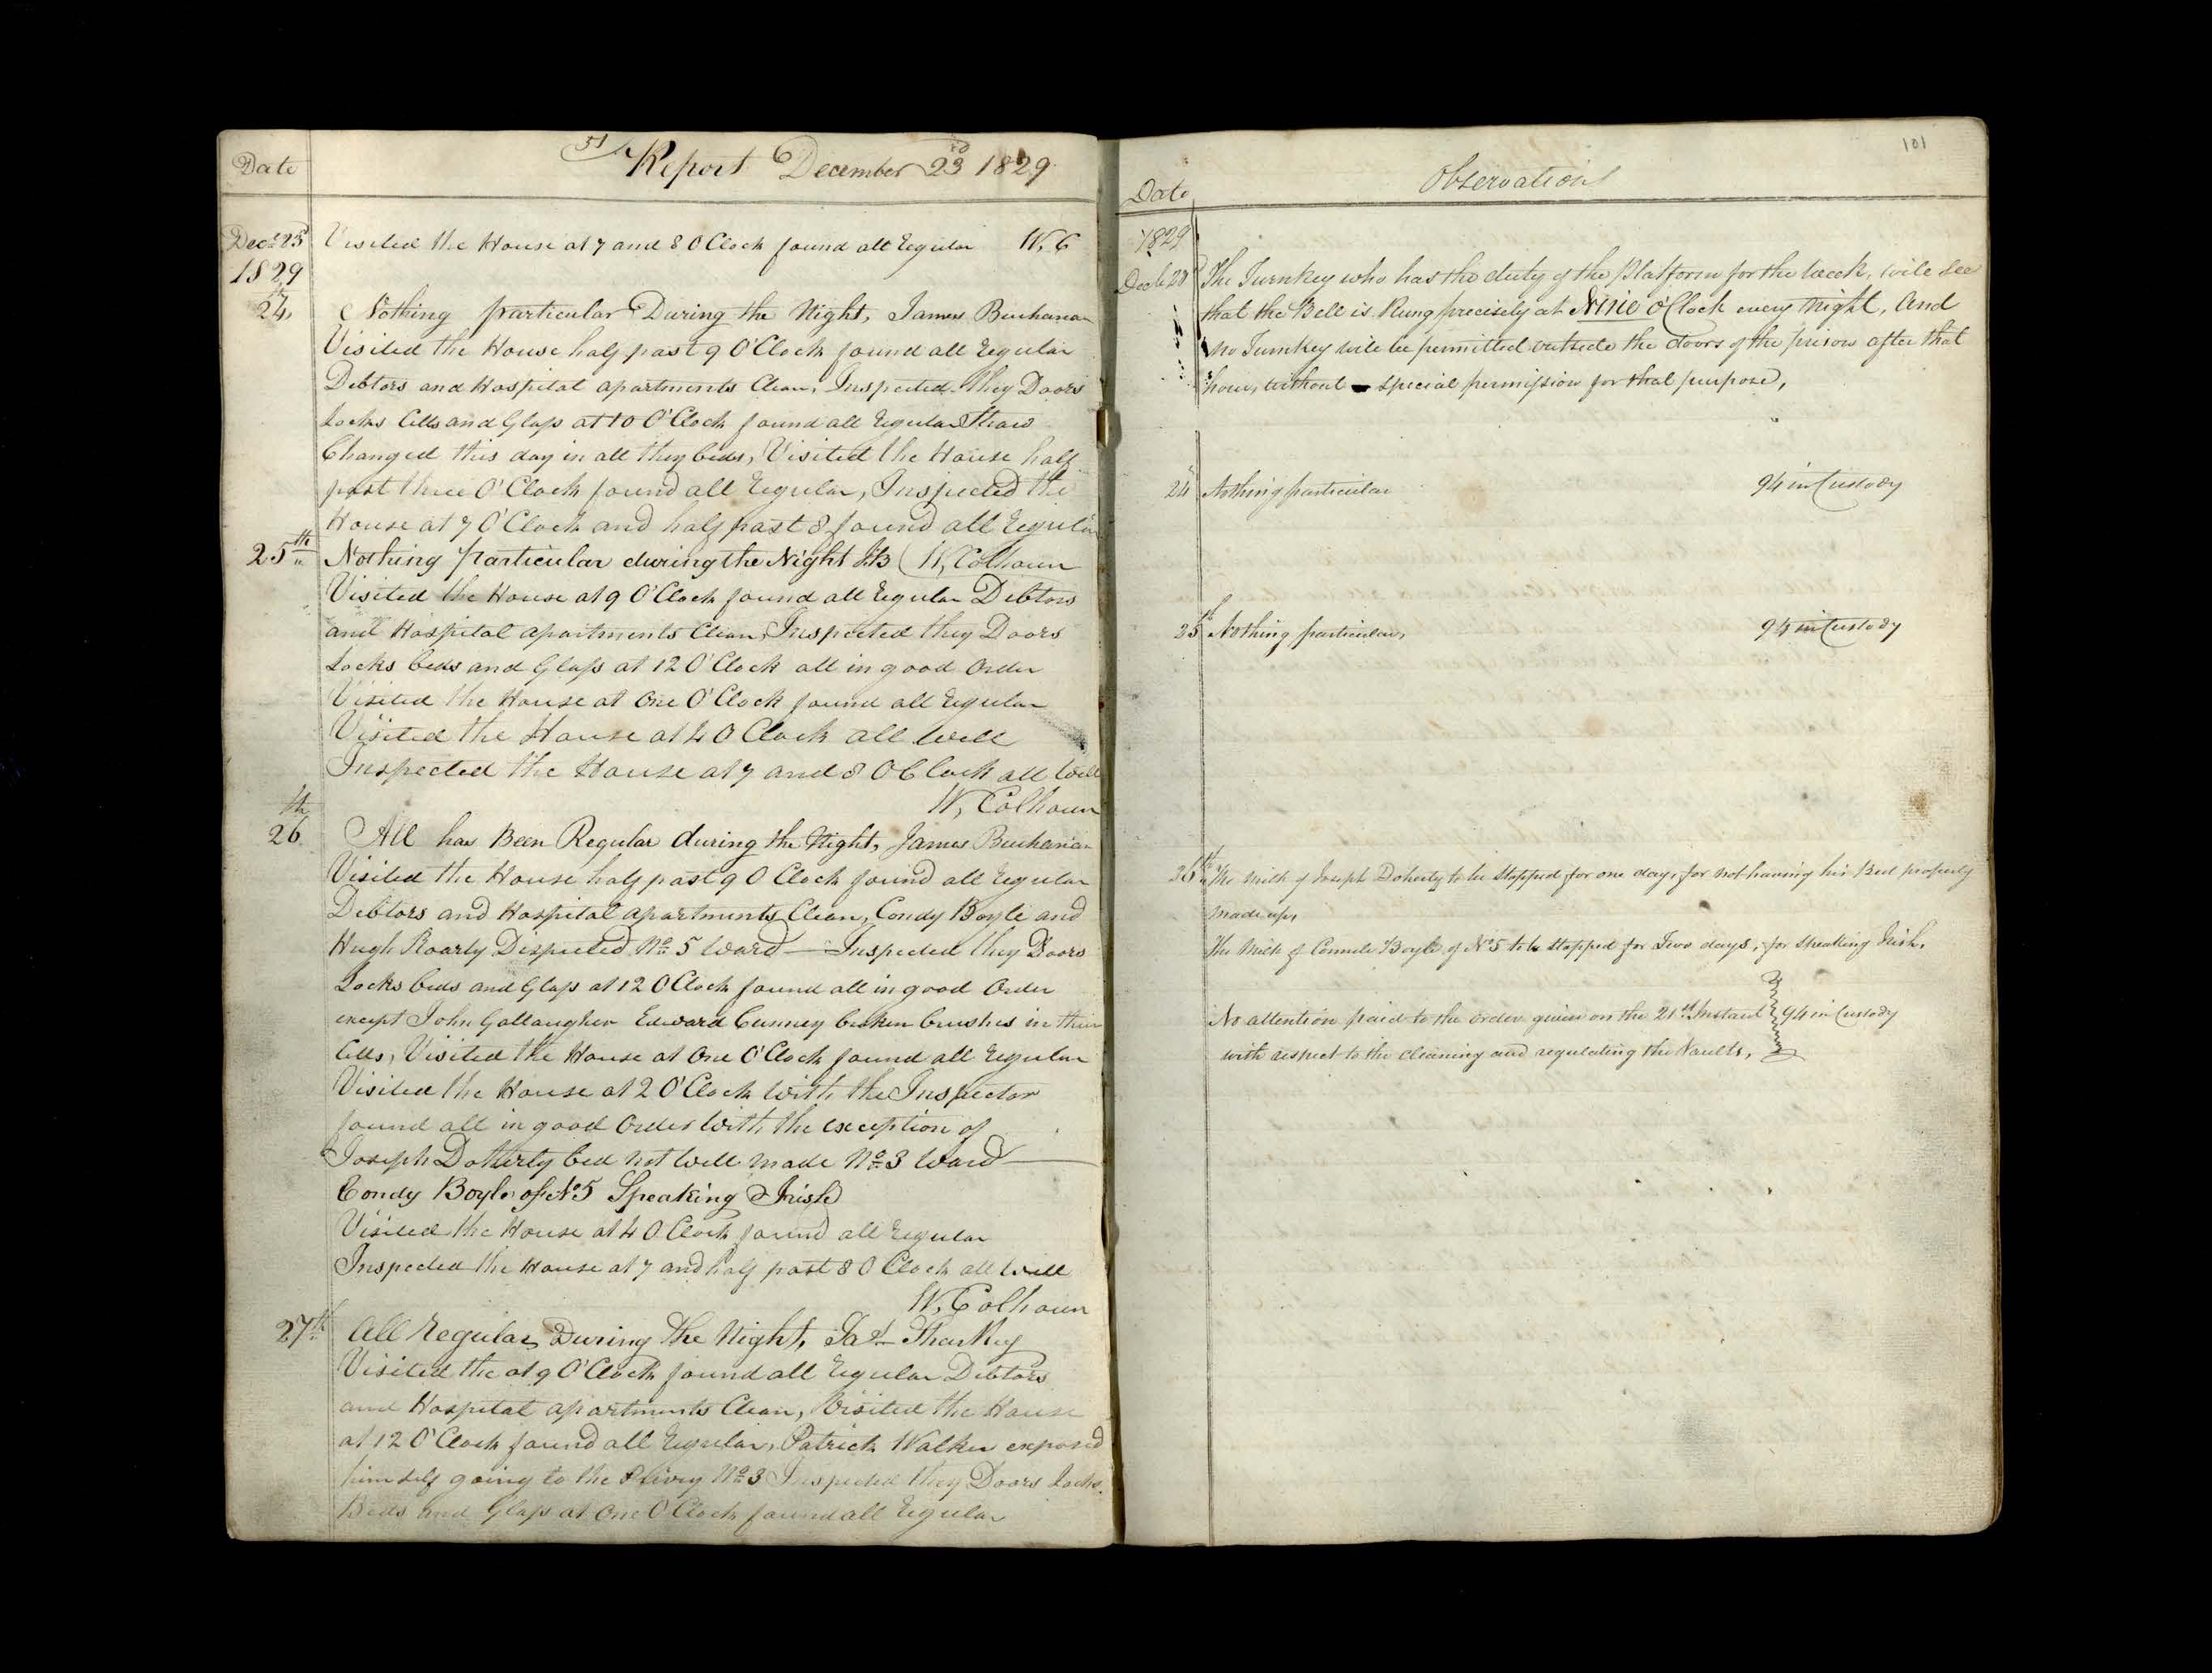 Date
51 Report December 23rd 1829
Decr 23
1829
Visited the House at 7 and 8 O Clock found all Regular W, C
24th Nothing particular During the Night, James Buchanan
Visited the House half past 9 O'Clock found all Regular
Debtors and Hospital apartments Clean, Inspected they Doors
Locks Cells and Glass at 10 O'Clock found all Regular Straw
Changed this day in all they beds, Visited the House half
past three O'Clock found all Regular, Inspected the
House at 7 O'Clock and half past 8 found all Regular
25th Nothing Particular during the Night JB (W, Colhoun
Visited the House at 9 O'Clock found all Regular Debtors
and Hospital apartments Clean, Inspected they Doors
Locks beds and Glass at 12 O'Clock all in good Order
Visited the House at One O'Clock found all Regular
Visited the House at 4 O Clock all Well
Inspected the House at 7 and 8 O Clock all Well
W, Colhoun
26th All has Been Regular during the Night, James Buchanan
Visited the House half past 9 O Clock found all Regular
Debtors and Hospital apartments Clean, Condy Boyle and
Hugh Roarty Disputed No 5 Ward — Inspected they Doors
Locks beds and Glass at 12 O Clock found all in good Order
except John Gallaugher Edward Cunney broken brushes in their
Cells, Visited the House at One O'Clock found all Regular
Visited the House at 2 O'Clock With the Inspector
found all in good Order With the exception of
Joseph Doherty bed not Well made No 3 Ward —
Condy Boyle of No 5 Speaking Irish
Visited the House at 4 O Clock found all Regular
Inspected the House at 7 and half past 8 O Clock all Well
W, Colhoun
27th All Regular During the Night, Jas Sharkey
Visited the at 9 O'Clock found all Regular Debtors
and Hospital apartments Clean, Visited the House
at 12 O'Clock found all Regular, Patrick Walker exposed
himself going to the Privey No 3 Inspected they Doors Locks
Beds and Glass at One O'Clock found all Regular
101
Date
Observations
1829
Decbr The Turnkey who has the duty of the Platform for the week, will see
that the Bell is Rung precisely at Nine o'Clock every Night, And
no Turnkey will be permitted outside the doors of the prison after that
hour, without special permission for that purpose,
24 Nothing particular 94 in Custody
25th Nothing particular, 94 in Custody
26th The Milk of Joseph Doherty to be Stopped for one day, for not having his Bed properly
made up,
The Milk of Connele Boyle of No 5 to be Stopped for Two days, for speaking Irish,
No attention paid to the order given on the 21st Instant 94 in Custody
with respect to the cleaning and regulating the Vaults,